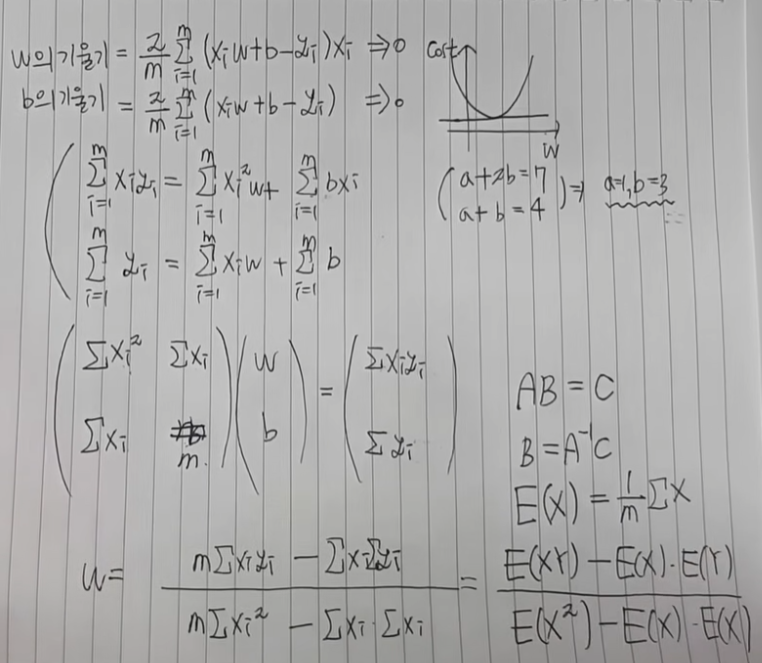 w의기울기 = 2/m Σ_{i=1}^{m} (xᵢw+b−yᵢ)xᵢ ⇒0
b의기울기 = 2/m Σ_{i=1}^{m} (xᵢw+b−yᵢ) ⇒0
Cost
W
Σ_{i=1}^{m} xᵢyᵢ = Σ_{i=1}^{m} xᵢ²w + Σ_{i=1}^{m} bxᵢ
Σ_{i=1}^{m} yᵢ = Σ_{i=1}^{m} xᵢw + Σ_{i=1}^{m} b
(a+2b=7
a+b=4) ⇒ a=1, b=3
(Σxᵢ² Σxᵢ) (w) = (Σxᵢyᵢ)
(Σxᵢ m.) (b) (Σyᵢ)
AB = C
B = A⁻¹C
E(X) = 1/m ΣX
w = (mΣxᵢyᵢ − ΣxᵢΣyᵢ) / (mΣxᵢ² − Σxᵢ·Σxᵢ) = (E(XY)−E(X)·E(Y)) / (E(X²)−E(X)·E(X))